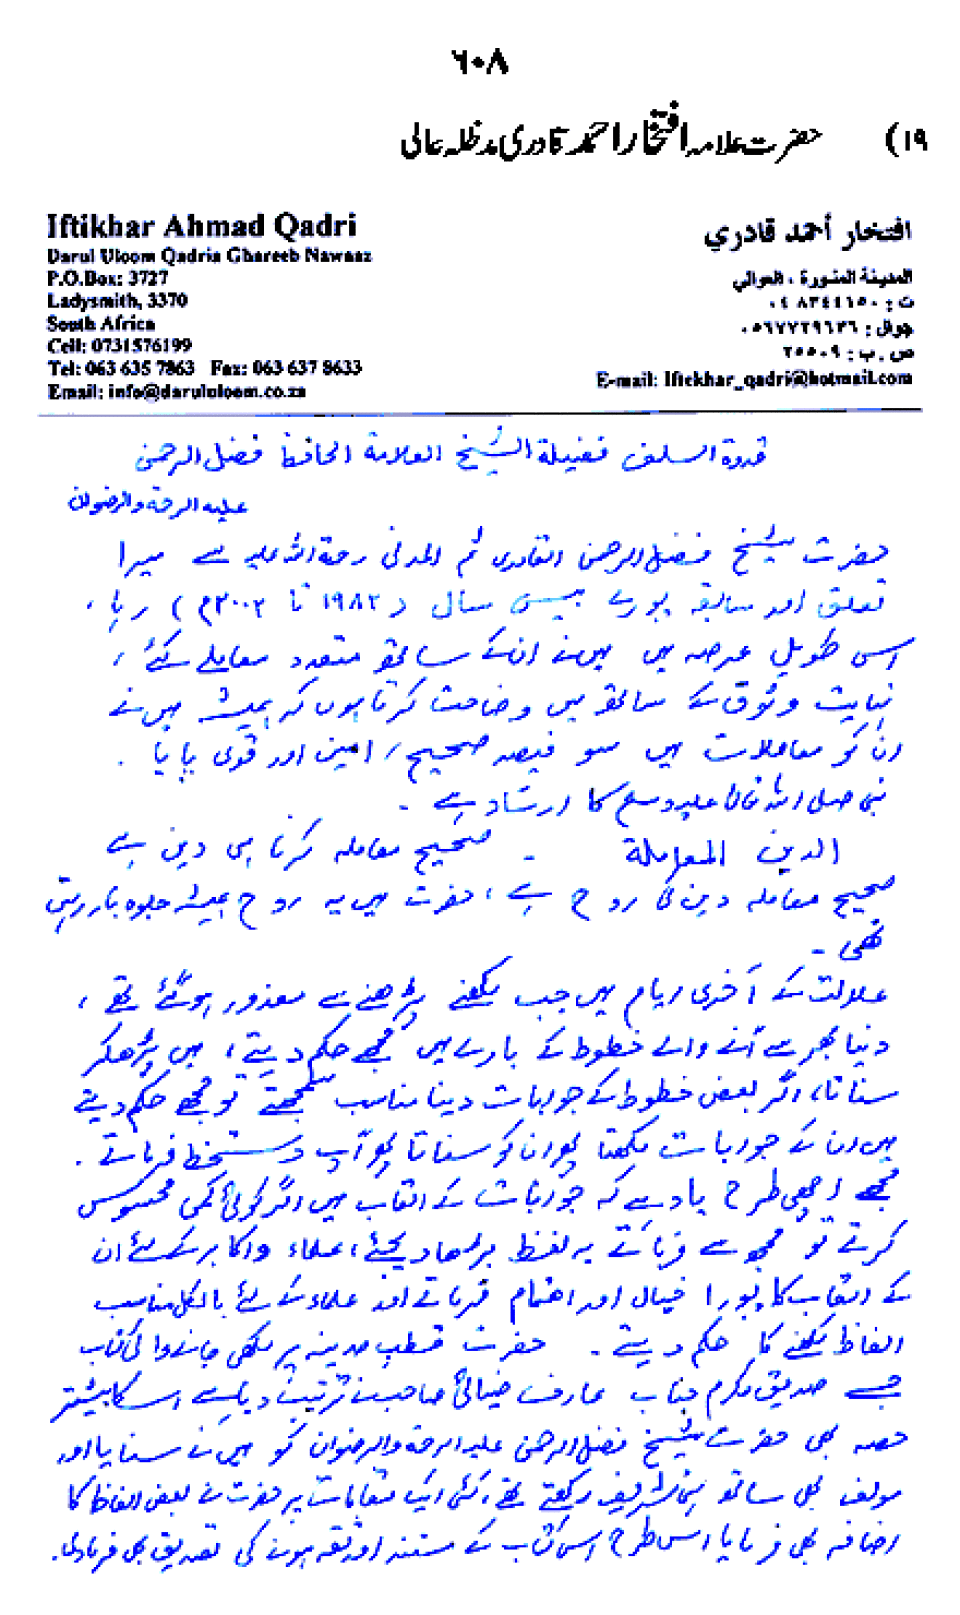 ٦٠٨
١٩) حضرت علامہ افتخار احمد قادری مدظلہ عالی
Iftikhar Ahmad Qadri
Darul Uloom Qadria Ghareeb Nawaaz
P.O.Box: 3727
Ladysmith, 3370
South Africa
Cell: 0731576199
Tel: 063 635 7863 Fax: 063 637 8633
Email: info@darululoom.co.za
افتخار أحمد قادري
المدينة المنورة ، العوالي
ت : ٠٤ ٨٣٤٤٦٥٠
جوال : ٠٥٦٧٧٢٩٦٣٦
ص . ب : ٢٥٥٠٩
E-mail: Iftekhar_qadri@hotmail.com
قدوة السلف فضيلة الشيخ العلامة الحافظ فضل الرحمن
علیہ الرحمۃ والرضوان
حضرت شیخ فضل الرحمن القادری ثم المدنی رحمۃ اللہ علیہ سے میرا
تعلق اور سابقہ پورے بیس سال (١٩٨٢ تا ٢٠٠٢م) رہا،
اس طویل عرصہ میں میں نے ان کے ساتھ متعدد معاملے کئے،
نہایت وثوق کے ساتھ میں وضاحت کرتا ہوں کہ ہمیشہ میں نے
ان کو معاملات میں سو فیصد صحیح، امین اور قوی پایا .
نبی صلی اللہ تعالیٰ علیہ وسلم کا ارشاد ہے -
الدين المعاملة - صحیح معاملہ کرنا ہی دین ہے
صحیح معاملہ دین کی روح ہے، حضرت میں یہ روح ہمیشہ جلوہ بار رہتی
تھی -
علالت کے آخری ایام میں جب لکھنے پڑھنے سے معذور ہوگئے تھے،
دنیا بھر سے آنے والے خطوط کے بارے میں مجھے حکم دیتے، میں پڑھکر
سناتا، اگر بعض خطوط کے جوابات دینا مناسب سمجھتے تو مجھے حکم دیتے
میں ان کے جوابات لکھتا پھر ان کو سناتا پھر آپ دستخط فرماتے .
مجھے اچھی طرح یاد ہے کہ جوابات کے القاب میں اگر کوئی کمی محسوس
کرتے تو مجھ سے فرماتے یہ لفظ بڑھا دیجئے، علماء و اکابر کے لئے ان
کے القاب کا پورا خیال اور اہتمام فرماتے اور علماء کے لئے بالکل مناسب
الفاظ لکھنے کا حکم دیتے . حضرت قطب مدینہ پر لکھی جانے والی کتاب
جسے صدیق مکرم جناب عارف ضیائی صاحب نے ترتیب دیا ہے اس کا بیشتر
حصہ بھی حضرت شیخ فضل الرحمن علیہ الرحمۃ والرضوان کو میں نے سنایا اور
مولف بھی ساتھ ہی تشریف رکھتے تھے، کئی ایک مقامات پر حضرت نے بعض الفاظ کا
اضافہ بھی فرمایا اس طرح اس کتاب کے مستند اور ثقہ ہونے کی تصدیق بھی فرمادی.